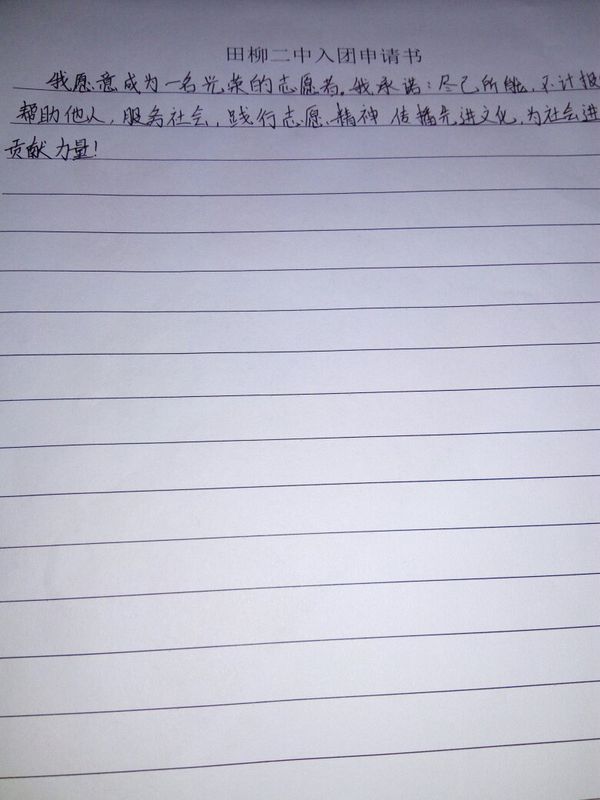 田柳二中入团申请书
我愿意成为一名光荣的志愿者。我承诺：尽己所能，不计报
帮助他人，服务社会，践行志愿精神 传播先进文化，为社会进
贡献力量！